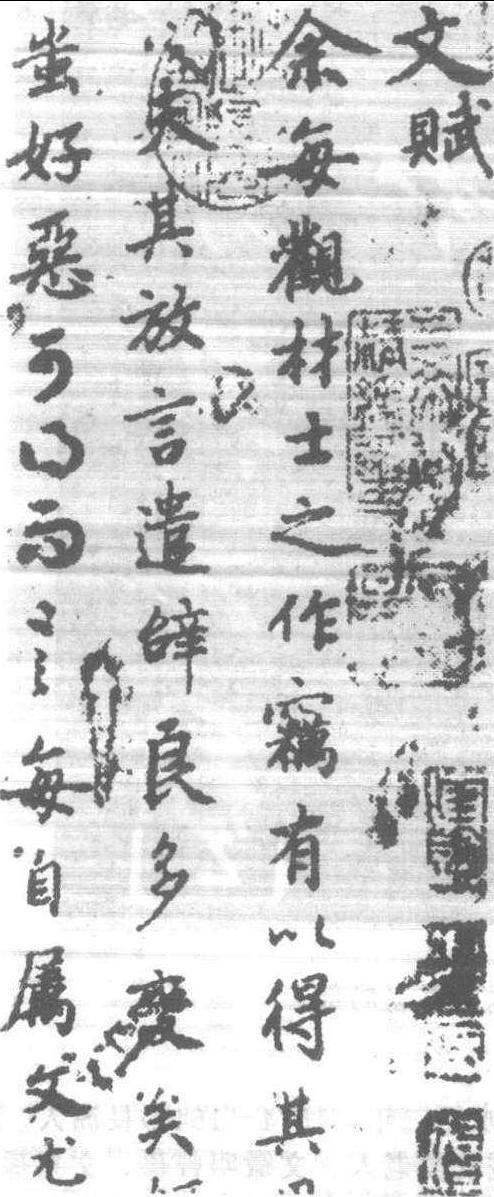 文賦
余每觀材士之作竊有以得其
心夫其放言遣辭良多變矣
蚩好惡可得而言每自屬文尤